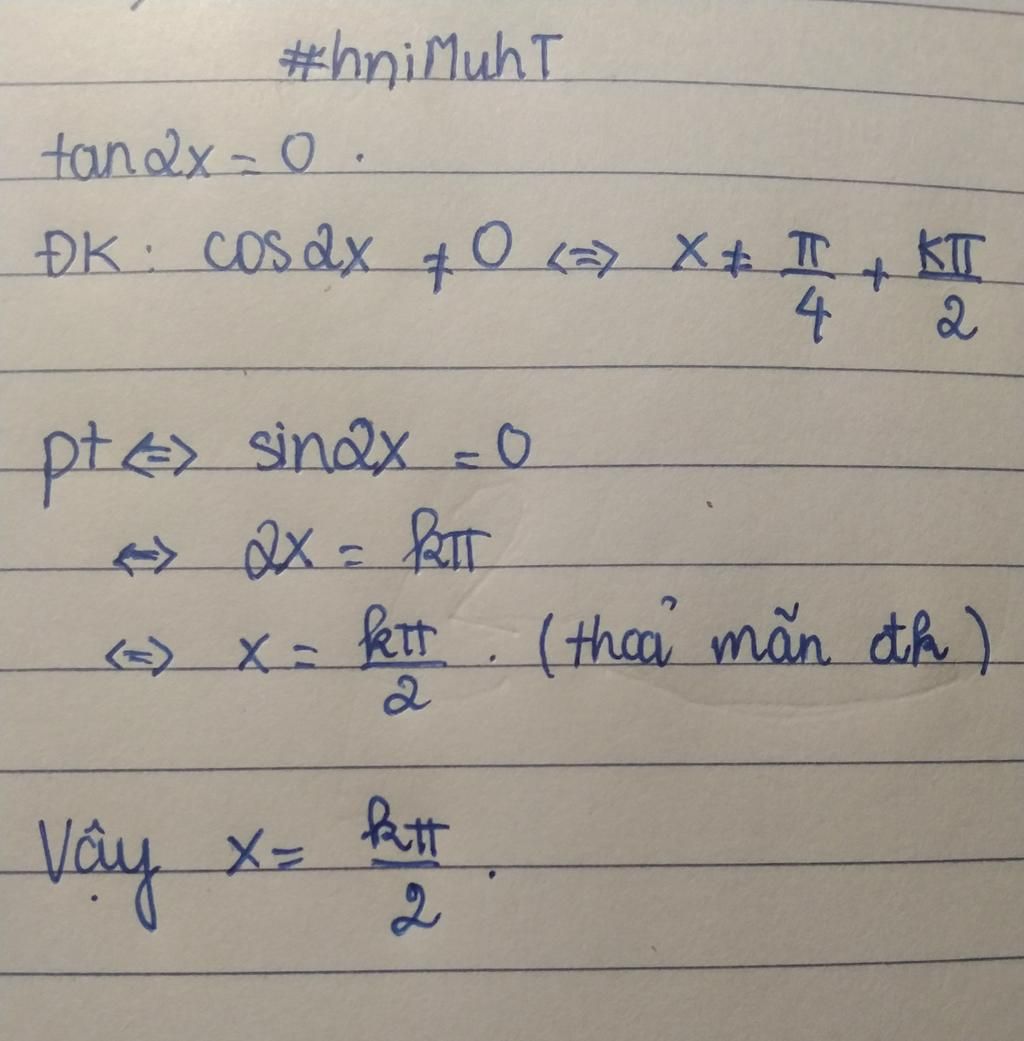 #hniMuhT
tan2x = 0 .
ĐK : cos2x ≠ 0 <=> x ≠ π/4 + kπ/2
pt <=> sin2x = 0
<=> 2x = kπ
<=> x = kπ/2 . (thoả mãn đk)
Vậy x = kπ/2 .